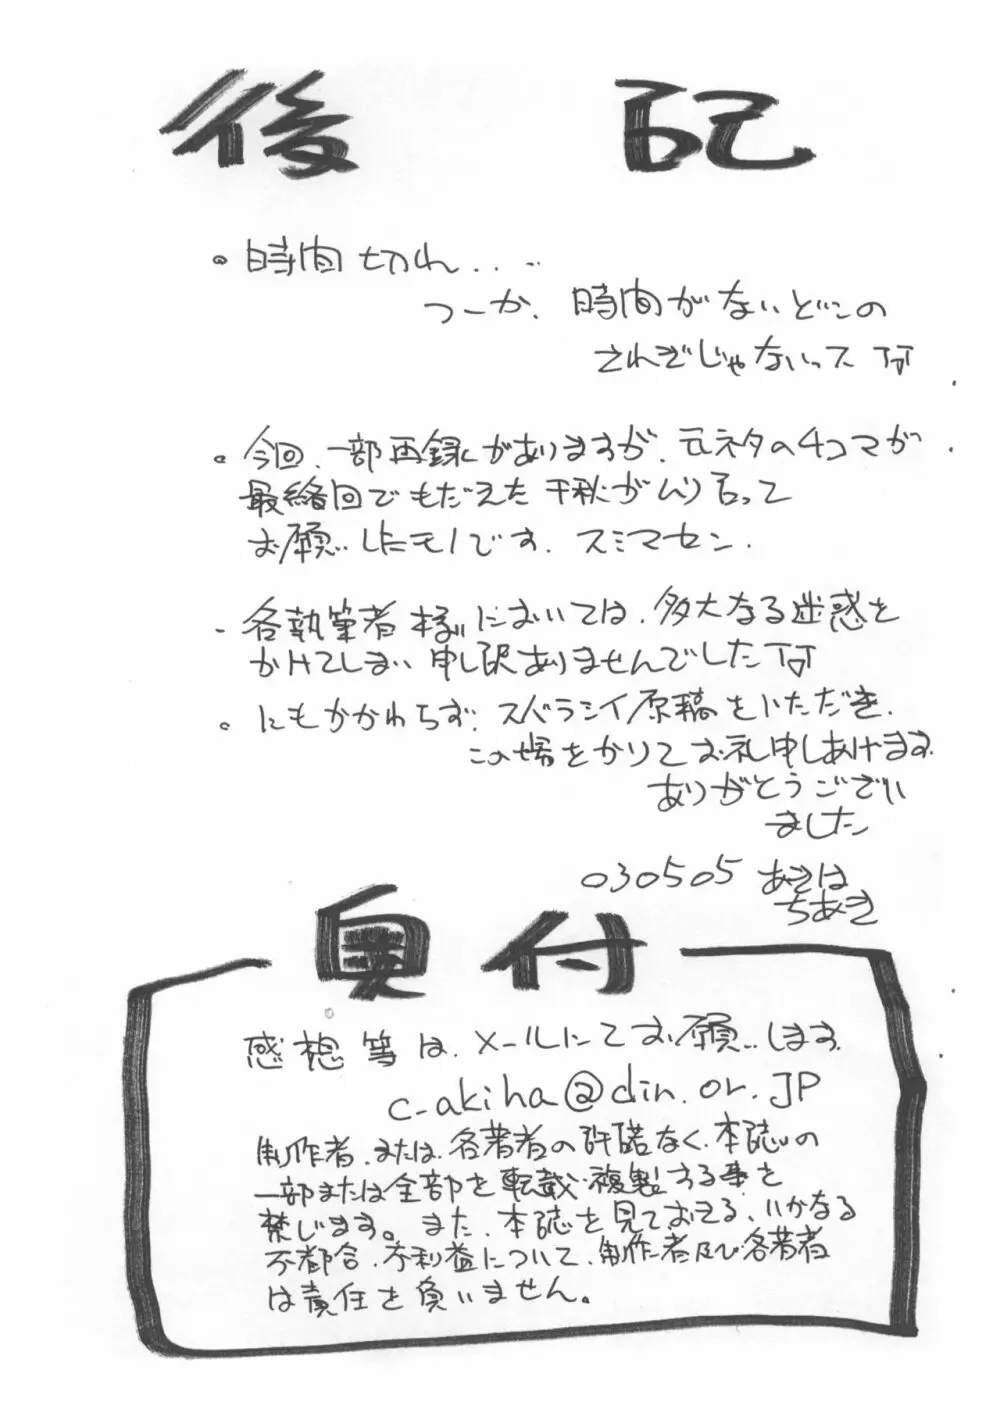 後記
。時間切れ.. ..
つーか、時間がないどこの
さわぎじゃないっス
。今回、一部再録がありますが、元ネタの4コマが
最終回でもだえた千秋がムリ言って
お願いしたモノです。スミマセン.
・各執筆者様においては、多大なる迷惑を
かけてしまい申し訳ありませんでした
。にもかかわらず、スバラシイ原稿をいただき、
この場をかりてお礼申しあげます
ありがとうござい
ました
030505 あきは
ちあき
奥付
感想等は、メールにてお願いします
c-akiha@din.or.JP
制作者、または、各著者の許諾なく、本誌の
一部または全部を転載・複製する事を
禁じます。また、本誌を見ておきる、いかなる
不都合、不利益について、制作者及び各著者
は責任を負いません。